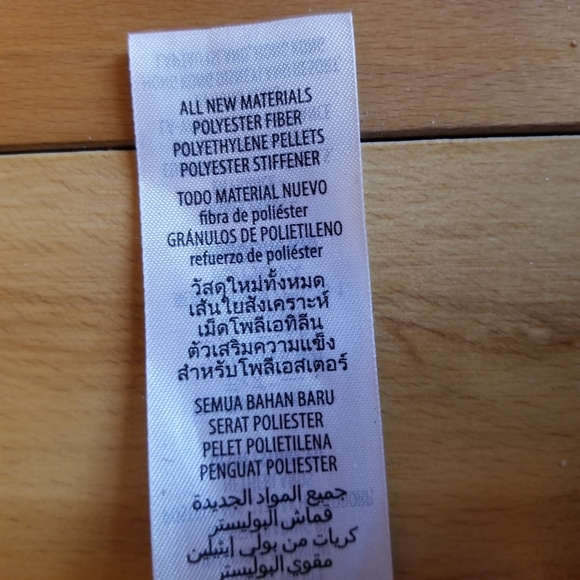 ALL NEW MATERIALS
POLYESTER FIBER
POLYETHYLENE PELLETS
POLYESTER STIFFENER
TODO MATERIAL NUEVO
fibra de poliéster
GRÁNULOS DE POLIETILENO
refuerzo de poliéster
วัสดุใหม่ทั้งหมด
เส้นใยสังเคราะห์
เม็ดโพลีเอทิลีน
ตัวเสริมความแข็ง
สำหรับโพลีเอสเตอร์
SEMUA BAHAN BARU
SERAT POLIESTER
PELET POLIETILENA
PENGUAT POLIESTER
جميع المواد الجديدة
قماش البوليستر
كريات من بولي إيثيلين
مقوي البوليستر